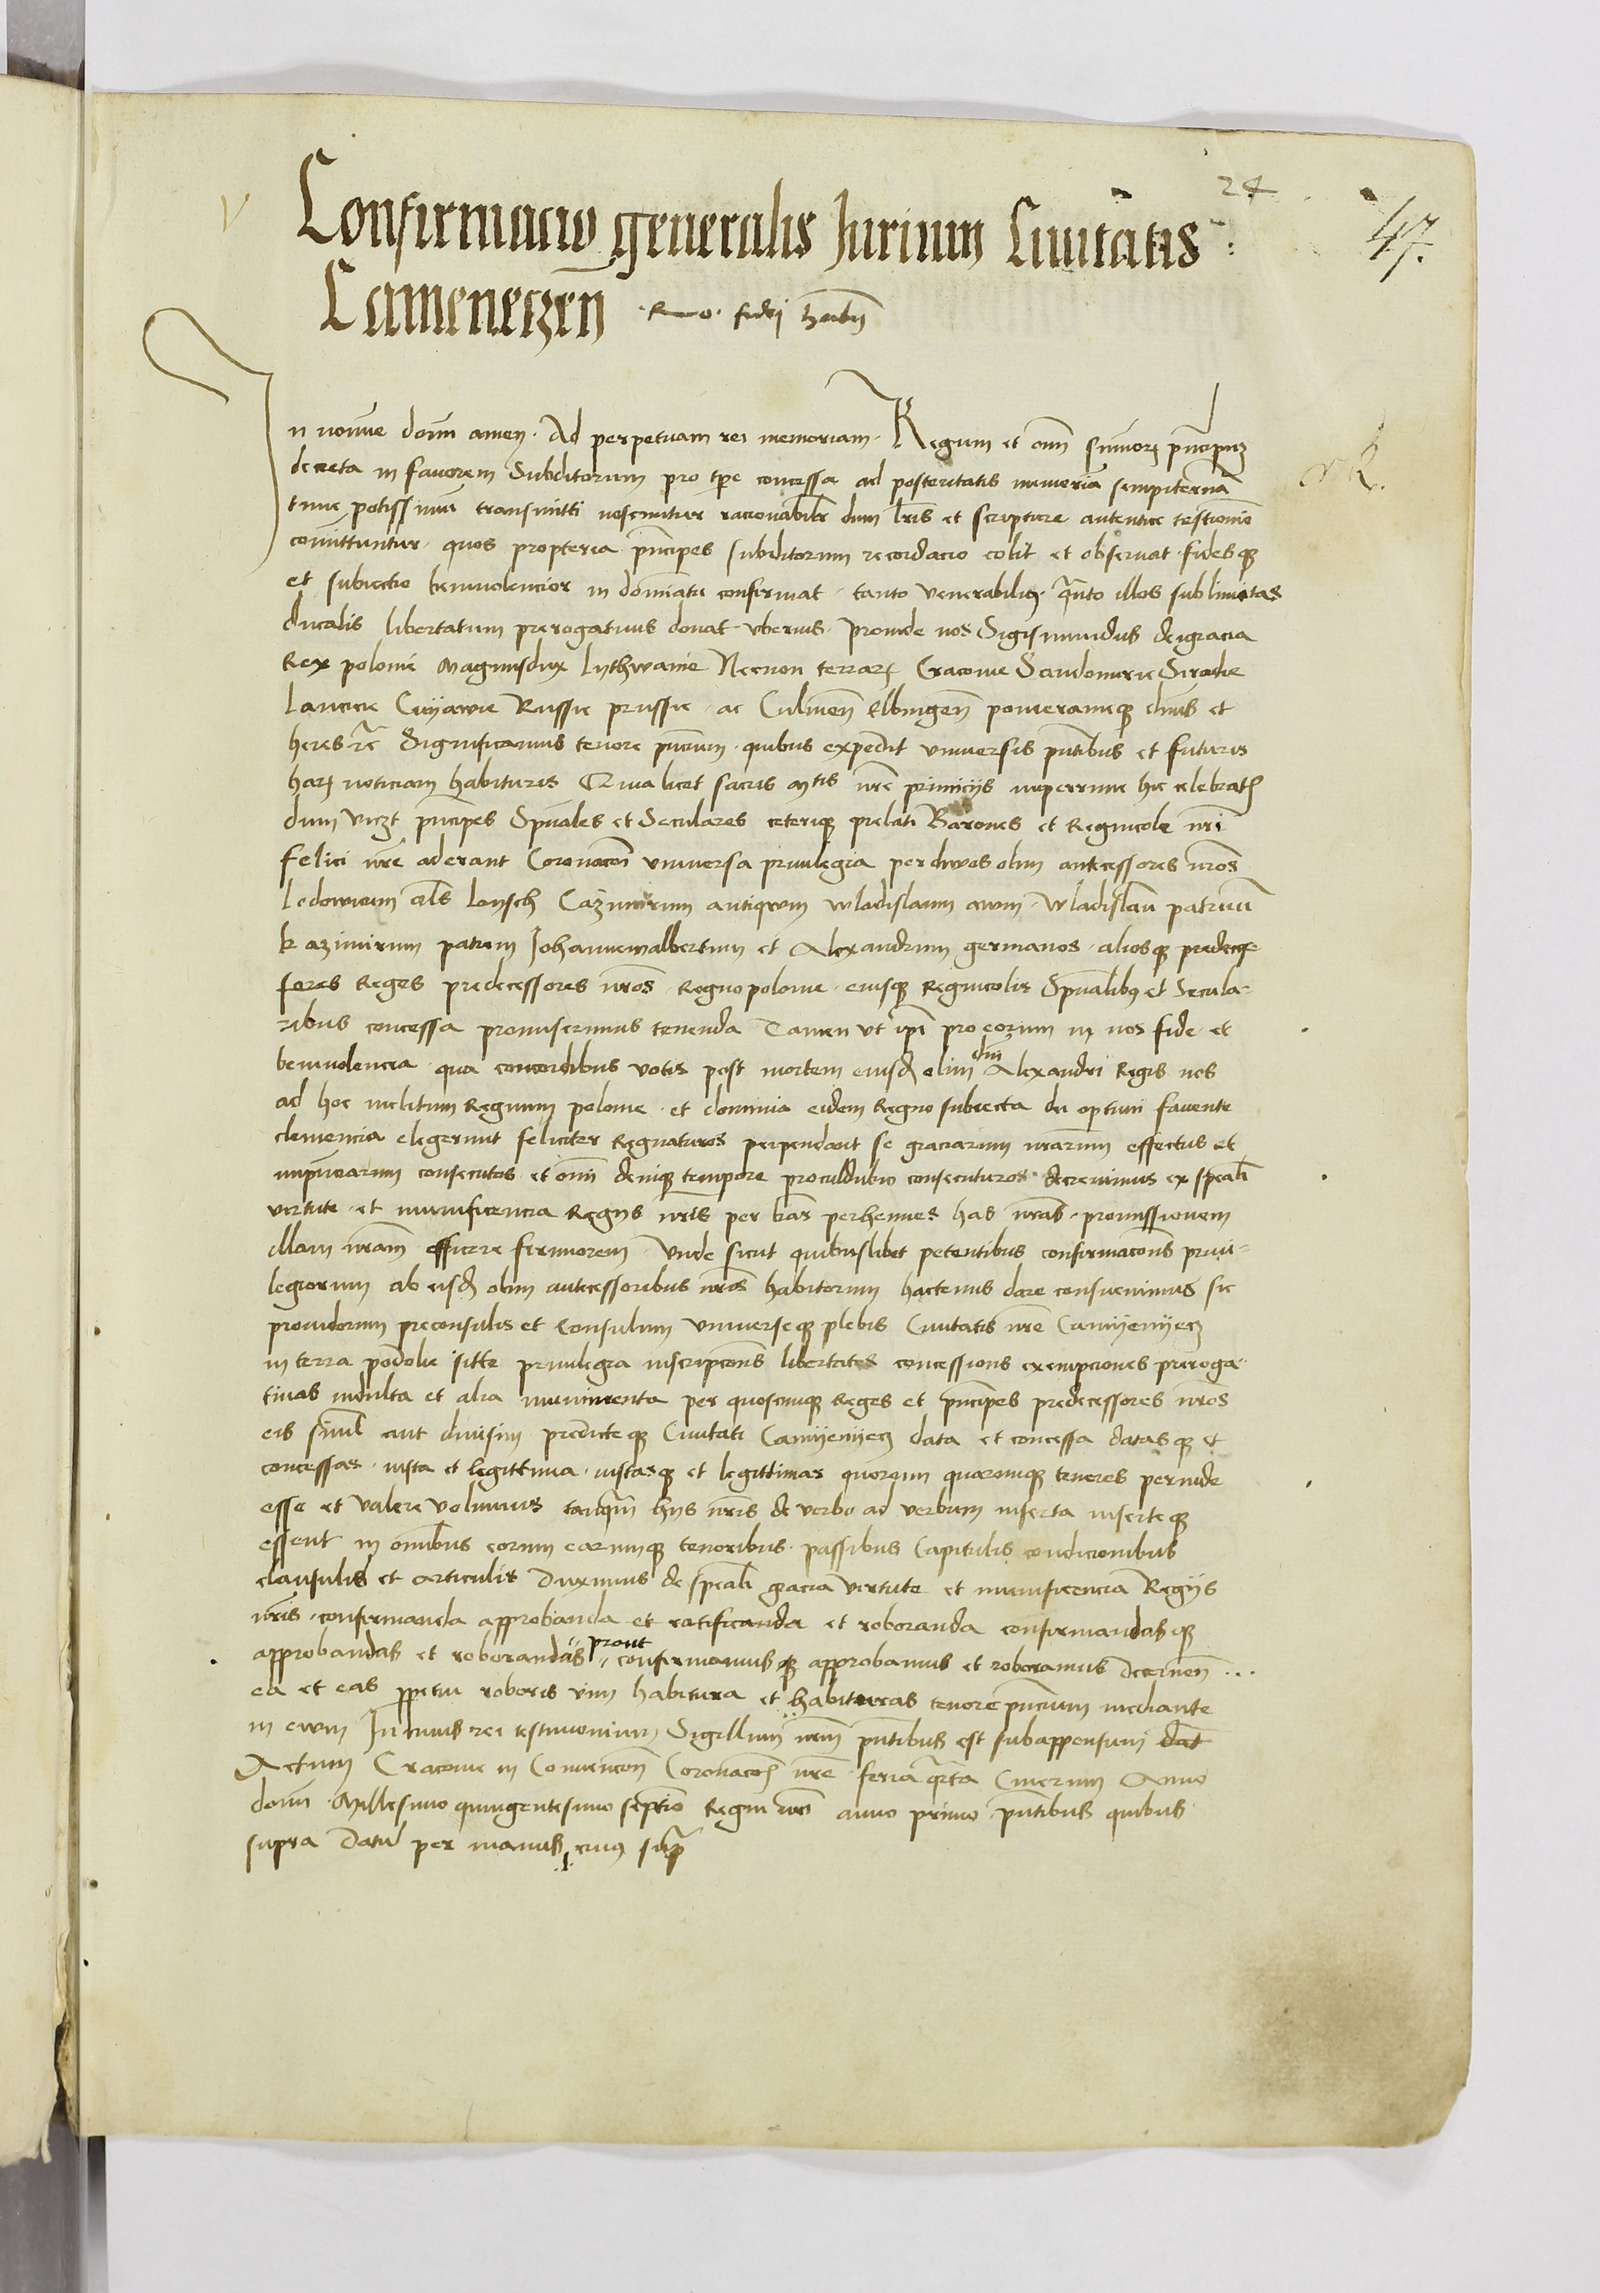 24
47.
Confirmacio generalis Jurium Ciuitatis
Cameneczen
In nomie domi amen. Ad perpetuam rei memoriam. Regum et omi sumorz pncipuz
decreta in fauorem Subditorum pro tpe concessa ad posteritatis memeriam sempiternam
tunc potissimu transmitti noscuntur racionabilr dum lris et scripture autentice testionio
comittuntur. quos propterea pncipes subditorum recordacio colit et obseruat. fidesq
et subiectio beniuolencior in dominatu confirmat. tanto venerabiliq. qnto illos sublimitas
ducalis libertatum prerogatiuis donat vberius. proinde nos Sigismundus deigracia
Rex polonie Magnusdux lythwanie Necnon terrarz Cracouie Sandomirie Siradie
lancicie Cuyauie Russie prussie. ac Culmen Elbingen pomeranieq dns et
heres rc Significamus tenore pncium. quibus expedit vniuersis pntibus et futuris
harz noticiam habituris Qua licet sacris mtis nre primicijs nuperrime hic celebratis
dum viczt pncipes Spuales et Seculares ceteriq prelati Barones et Regnicole nri
felici nre aderant Coronacoi vniuersa priuilegia per diuos olim antecessores nros
lodowicum als loysch Cazimirum antiqum wladislaum auum. wladislau patruu
kazimirum patrem Johannemalbertum et Alexandrum germanos. aliosq predeces
sores Reges predecessores nros. Regnopolonie eiusq Regnicolis Spualibq et Secula-
ribus concessa promiserimus tenenda Tamen vt ipi pro eorum in nos fide et
beniuolencia. qua concordibus votis post mortem eiusd olim dni Alexandri Regis nos
ad hoc inclitum Regnum polonie. et dominia eidem Regno subiecta dei optimi fauente
clemencia elegerunt feliciter Regnaturos perpendant se graciarum nrarum effectus et
consecutos et omi deniq tempore proculdubio consecuturos. decreuimus ex speali
virtute et munificencia Regijs nris per has perhennes has nras. promissionem
illam nram efficere firmiorem. Vnde sicut quibuslibet petentibus confirmacons priui-
legiorum ab eisd olim antecessoribus nris habitorum hactenus dare consueuimus sic
prouidorum preconsulis et Consulum vniuerseq plebis Ciuitatis nre Camyenyecz
in terra podolie site priuilegia inscripcons libertates concessions exempciones preroga-
tiuas indulta et alia munimenta per quoscunq Reges et pncipes predecessores nros
eis simul aut diuisim predicteq Ciuitati Camyenyecz data et concessa datasq et
concessas. iusta et legittima. iustasq et legittimas quorum quarumq tenores perinde
esse et valere volumus tanqm hijs nris de verbo ad verbum inserta inserteq
essent in omibus eorum earumq tenoribus. passibus Capitulis condicionibus
clausulis et articulis Duximus de speali gracia virtute et munificencia Regijs
nris. confirmanda approbanda et ratificanda et roboranda confirmandasq
approbandas et roborandas prout confirmamusq approbamus et roboramus decernen ...
ea et eas ppetui roboris vim habitura et habituras tenore pncium mediante
in euum In cuius rei testimonium Sigillum nrm pntibus est subappensum dat
Actum Cracouie in Conuencon Coronacois nre. feria qrta Cinerum Anno
domi Millesimo quingentesimo septio Regni nri anno primo. pntibus quibus
supra Datu per manus cuiq supra